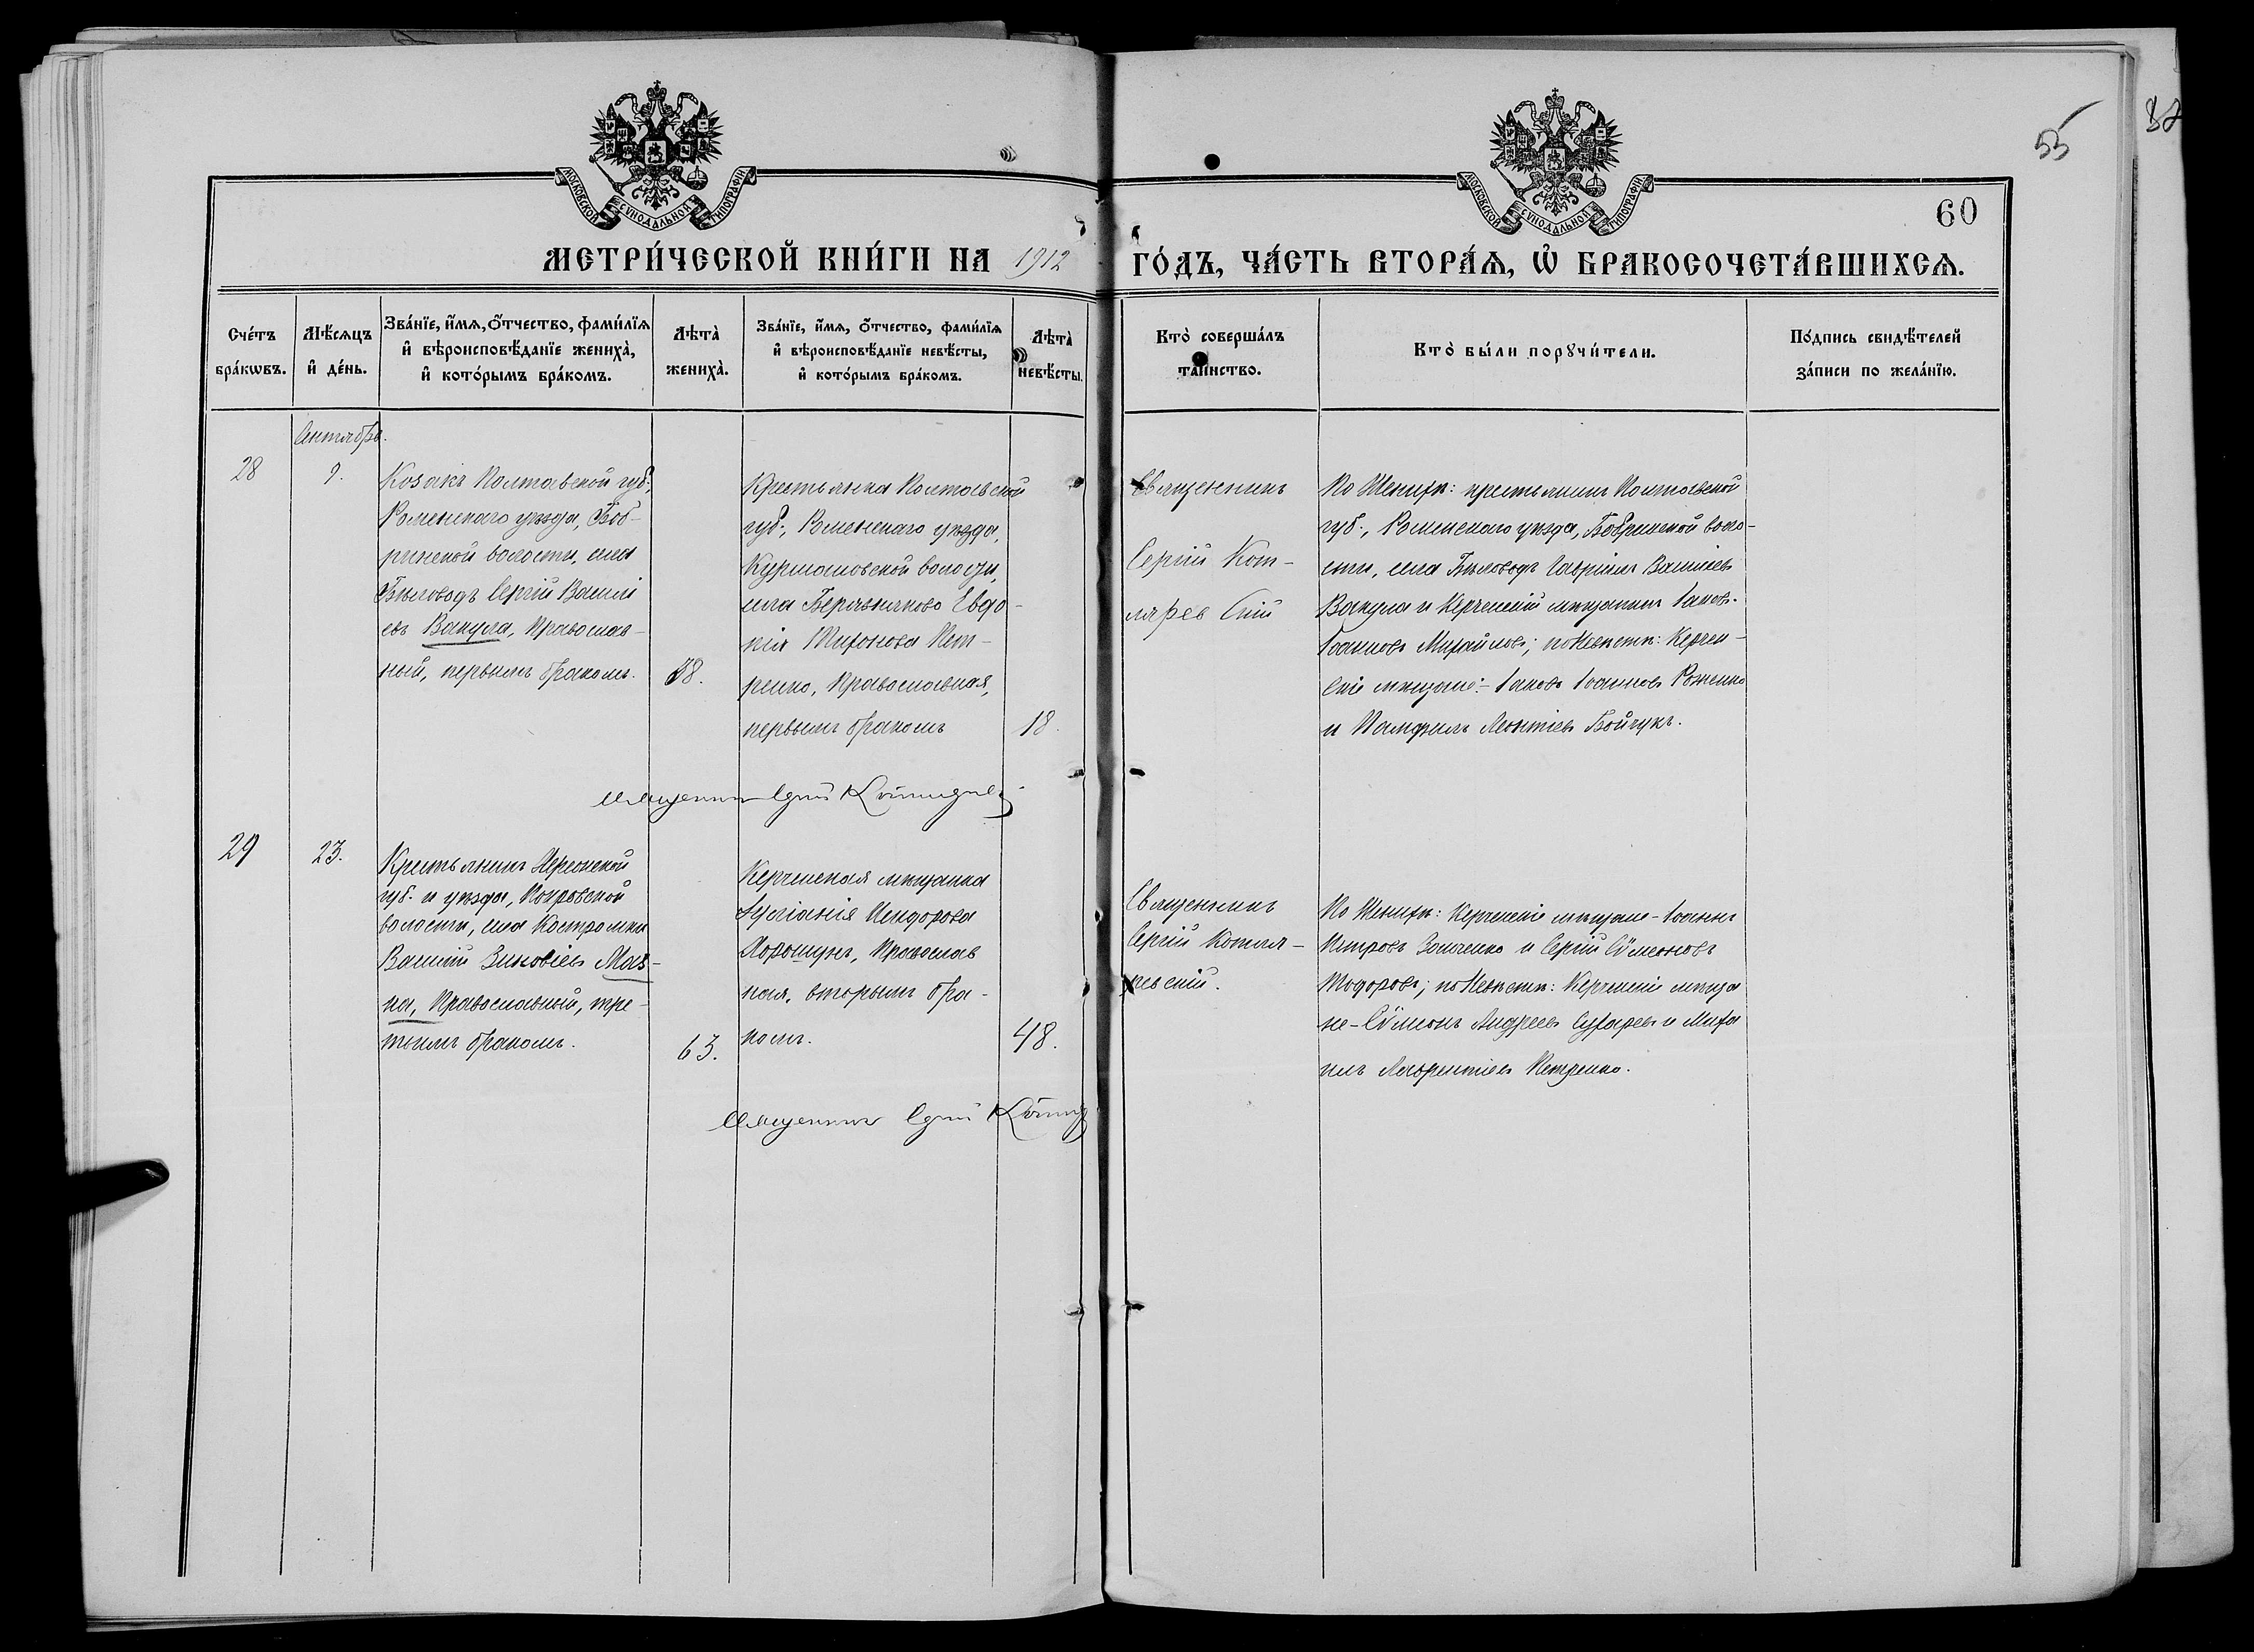 55
60
МОСКОВСКОЙ СѴНОДАЛЬНОЙ ТИПОГРАФІИ
МОСКОВСКОЙ СѴНОДАЛЬНОЙ ТИПОГРАФІИ
МЕТРИ́ЧЕСКОЙ КНИ́ГИ НА 1912 ГО́ДЪ, ЧА́СТЬ ВТОРА́Ѧ, Ѡ҆ БРАКОСОЧЕТА́ВШИХСѦ.
Сче́тъ
бра́кѡвъ.
Мѣ́сяцъ
и҆ де́нь.
Зва́нїе, и҆́мѧ, ѻ҆́тчество, фами́лїѧ
и҆ вѣроисповѣ́данїе жениха̀,
и҆ кото́рымъ бра́комъ.
Лѣта̀
жениха̀.
Зва́нїе, и҆́мѧ, ѻ҆́тчество, фами́лїѧ
и҆ вѣроисповѣ́данїе невѣ́сты,
и҆ кото́рымъ бра́комъ.
Лѣта̀
невѣ́сты.
Кто̀ соверша́лъ
та́инство.
Кто̀ бы́ли порꙋчи́тели.
По́дпись свидѣ́телей
за́писи по жела́нїю.
Сентябрь.
28
9.
Козакъ Полтавской губ.,
Роменскаго уѣзда, Боб-
рикской волости, села
Бѣловодъ Сергій Василі
евъ Вакула, Православ-
ный, первымъ бракомъ.
Крестьянка Полтавской
губ., Роменскаго уѣзда,
волости,
села Евдо-
кія Пет-
ренко, Православная,
первымъ бракомъ
18.
Священникъ
Сергій Кот-
ляревскій
По Женихѣ: крестьянинъ Полтавской
губ., Роменскаго уѣзда, Бобрикской воло-
сти, села Бѣловодъ Гавріилъ Василіевъ
Вакула и Керченскій мѣщанинъ Іаковъ
Іоанновъ Михайловъ; по Невѣстѣ: Керчен-
скіе мѣщане: Іаковъ Іоанновъ Роженко
и Памфилъ Леонтіевъ Бойчукъ.
Священникъ Сергій
29
23.
Крестьянинъ Херсонской
губ. и уѣзда, Покровской
волости, села Костромки
Василій Зиновіевъ Маз-
на, Православный, тре-
тьимъ бракомъ.
63.
Керченская мѣщанка
Іуліанія
Хорошунъ, Православ
ная, вторымъ бра-
комъ.
48.
Священникъ
Сергій Котля-
ревскій.
По Женихѣ: Керченскіе мѣщане - Іоаннъ
Петровъ и Сергій Сѵмеоновъ
Тодоровъ; по Невѣстѣ: Керченскіе мѣща
не - Сѵмеонъ Андреевъ Сухаревъ и Миха
илъ Лаврентіевъ Петренко.
Священникъ Сергій